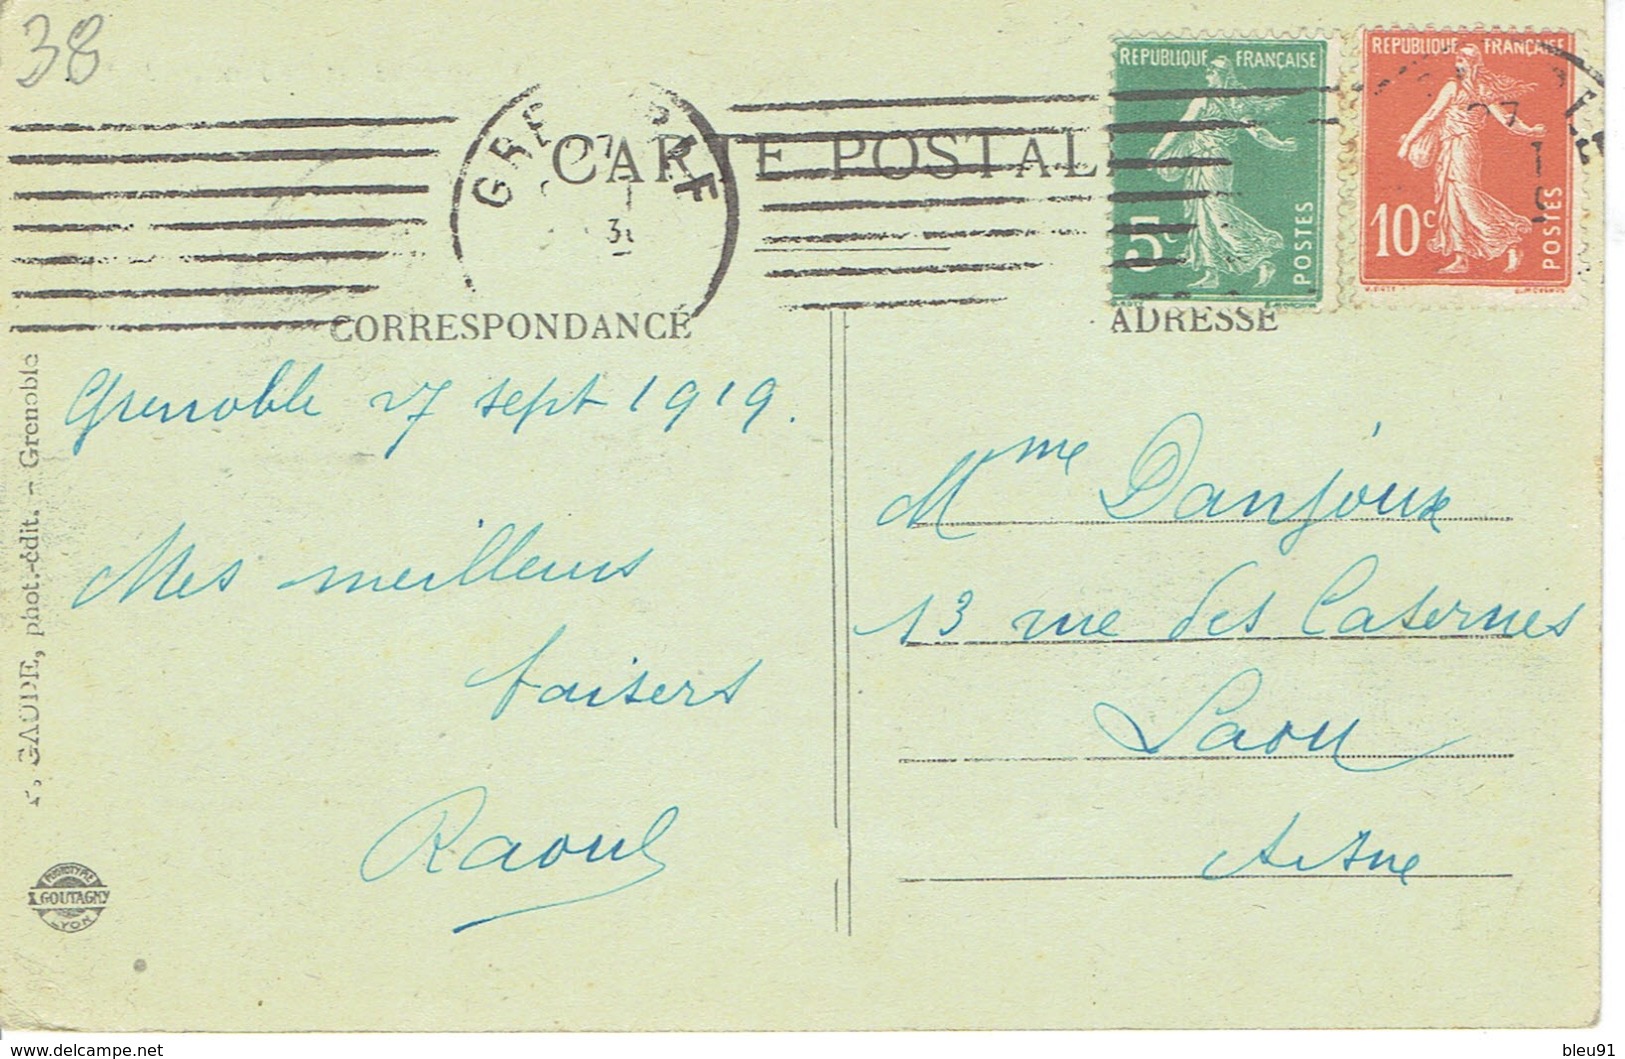 38
REPUBLIQUE FRANÇAISE
5c
POSTES
REPUBLIQUE FRANÇAISE
10c
POSTES
CARTE POSTALE
CORRESPONDANCE
ADRESSE
Grenoble 27 sept 1919.
Mes meilleurs
baisers
Raoul
Mme Danjoux
13 rue des Casernes
Laon
Aisne
GAUDE, phot.-édit. - Grenoble
PHOTOTYPIE
X. GOUTAGNY
LYON
www.delcampe.net
bleu91